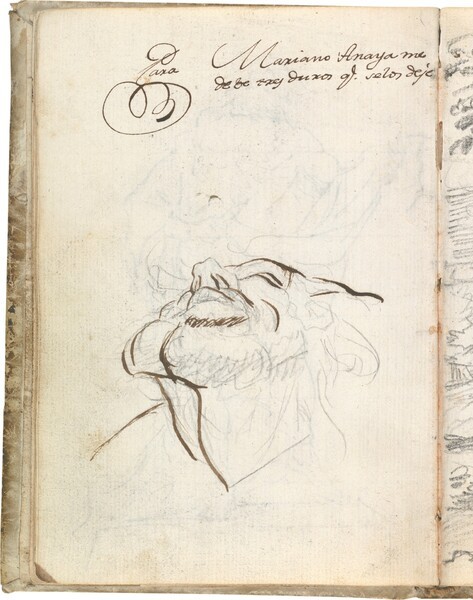 Para
Mariano Anaya me
debe tres duros q.ᵉ se los deje